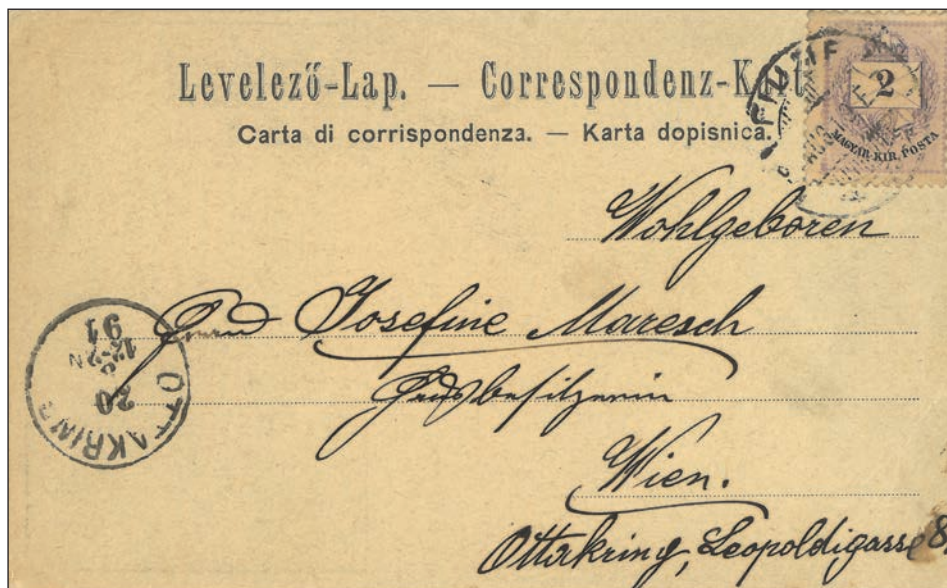 Levelező-Lap. — Correspondenz-Kart
Carta di corrispondenza. — Karta dopisnica.
FIUME
2
MAGYAR KIR. POSTA
Wohlgeboren
Josefine Maresch
Hausbesitzerin
Wien.
Ottakring, Leopoldigasse 8
OTTAKRING
20
91